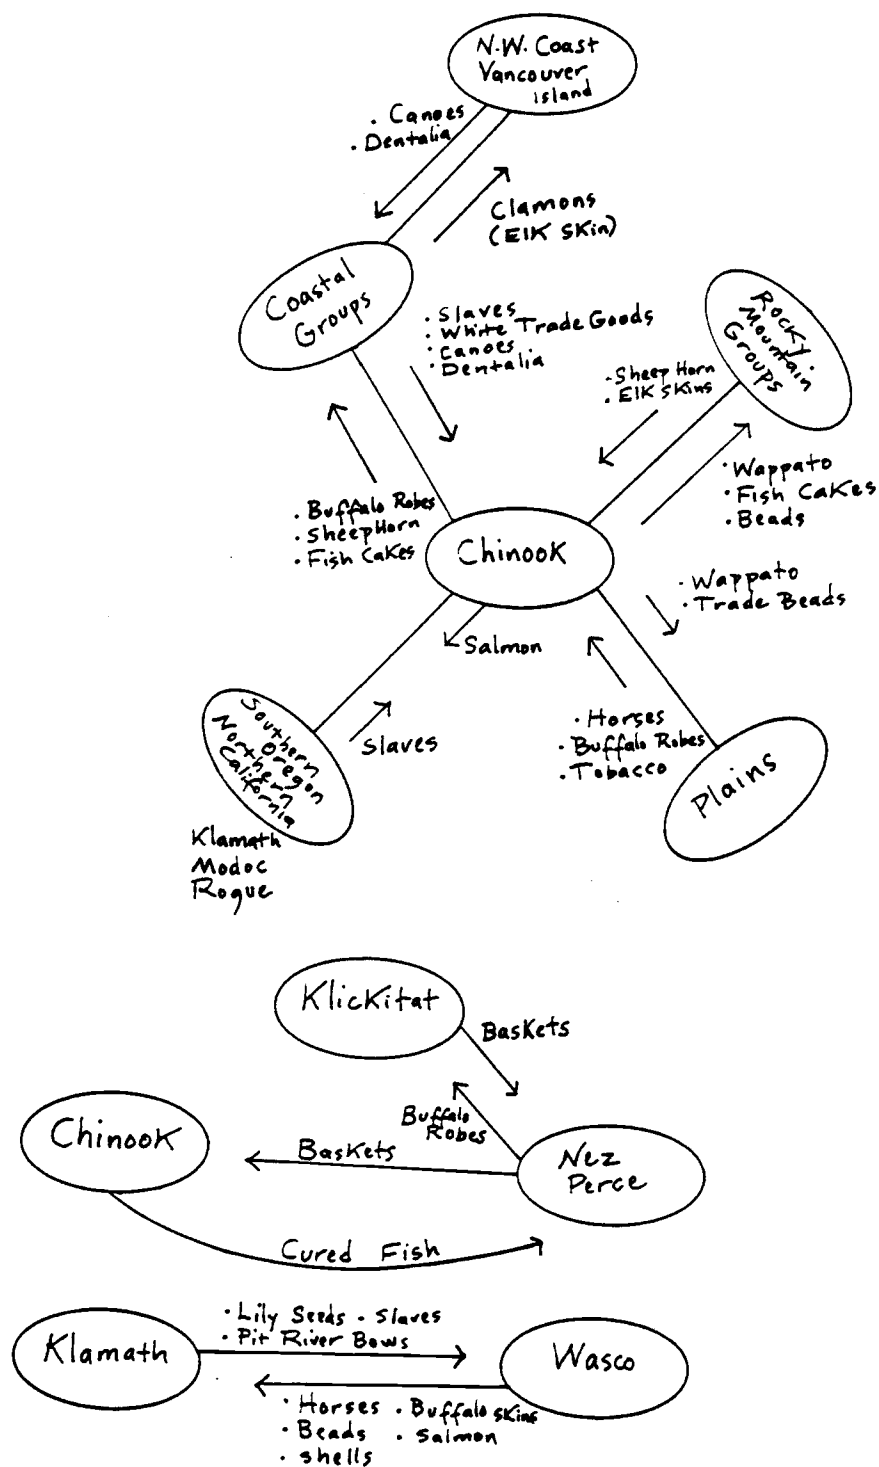 N.W. Coast
Vancouver
island
• Canoes
• Dentalia
Clamons
(Elk Skin)
Coastal
Groups
• Slaves
• White Trade Goods
• Canoes
• Dentalia
Rocky
Mountain
Groups
• Sheep Horn
• Elk Skins
• Wappato
• Fish Cakes
• Beads
• Buffalo Robes
• Sheep Horn
• Fish Cakes
Chinook
• Wappato
• Trade Beads
Salmon
Southern
Oregon
Northern
California
Slaves
• Horses
• Buffalo Robes
• Tobacco
Plains
Klamath
Modoc
Rogue
Klickitat
Baskets
Buffalo
Robes
Chinook
Baskets
Nez
Perce
Cured Fish
• Lily Seeds • Slaves
• Pit River Bows
Klamath
Wasco
• Horses • Buffalo skins
• Beads • Salmon
• shells